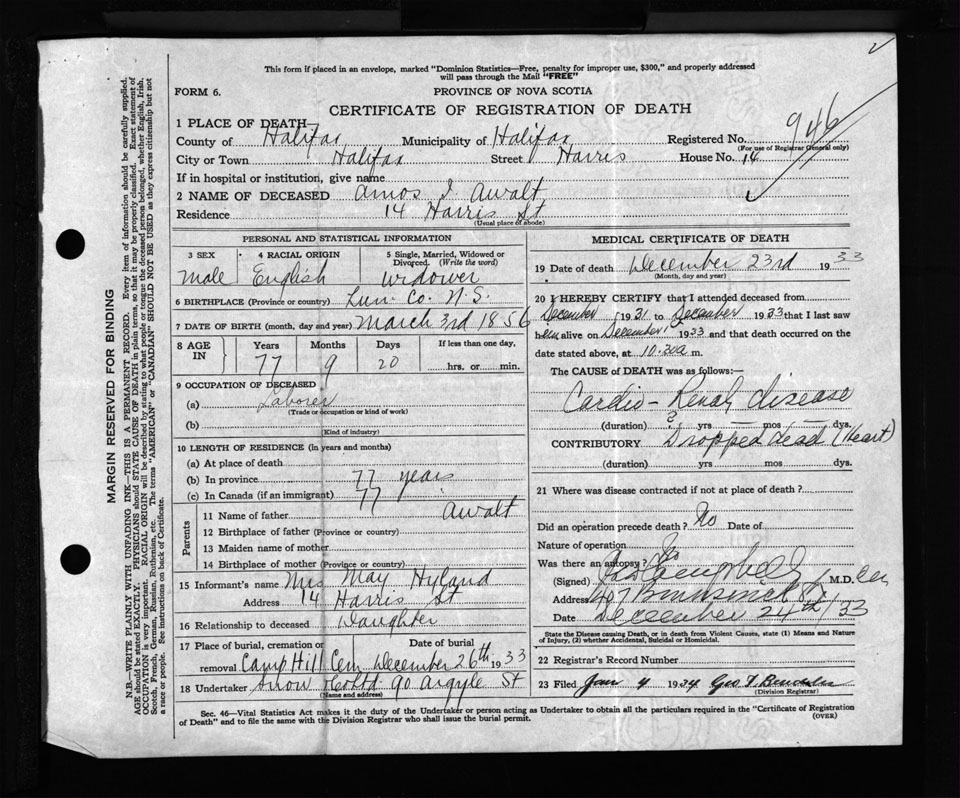 2
This form if placed in an envelope, marked "Dominion Statistics—Free, penalty for improper use, $300," and properly addressed
will pass through the Mail "FREE"
FORM 6. PROVINCE OF NOVA SCOTIA
CERTIFICATE OF REGISTRATION OF DEATH
1 PLACE OF DEATH
County of Halifax Municipality of Halifax Registered No. 946
(For use of Registrar General only)
City or Town Halifax Street Harris House No. 14
If in hospital or institution, give name
2 NAME OF DECEASED Amos I. Awalt
Residence 14 Harris St
(Usual place of abode)
PERSONAL AND STATISTICAL INFORMATION
3 SEX 4 RACIAL ORIGIN 5 Single, Married, Widowed or
Divorced. (Write the word)
Male English Widower
6 BIRTHPLACE (Province or country) Lun. Co. N.S.
7 DATE OF BIRTH (month, day and year) March 3rd 1856
8 AGE IN Years Months Days If less than one day,
77 9 20 hrs. or min.
9 OCCUPATION OF DECEASED
(a) Laborer
(Trade or occupation or kind of work)
(b)
(Kind of industry)
10 LENGTH OF RESIDENCE (in years and months)
(a) At place of death
(b) In province 77 years
(c) In Canada (if an immigrant) 77
Parents
11 Name of father Awalt
12 Birthplace of father (Province or country)
13 Maiden name of mother
14 Birthplace of mother (Province or country)
15 Informant's name Mrs May Hyland
Address 14 Harris St
16 Relationship to deceased Daughter
17 Place of burial, cremation or Date of burial
removal Camp Hill Cem December 26th 1933
18 Undertaker Snow & Co Ltd 90 Argyle St
(Name and address)
MEDICAL CERTIFICATE OF DEATH
19 Date of death December 23rd 1933
(Month, day and year)
20 I HEREBY CERTIFY that I attended deceased from
December 1931 to December 1933 that I last saw
him alive on December 1933 and that death occurred on the
date stated above, at 10.30a m.
The CAUSE of DEATH was as follows:—
Cardio-Renal disease
(duration) ? yrs — mos — dys.
CONTRIBUTORY Dropped dead (Heart)
(duration) yrs mos. dys.
21 Where was disease contracted if not at place of death?
Did an operation precede death? No Date of
Nature of operation
Was there an autopsy? No
(Signed) Campbell M.D.
Address 407 Brunswick St
Date December 24th/33
State the Disease causing Death, or in death from Violent Causes, state (1) Means and Nature
of Injury, (2) whether Accidental, Suicidal or Homicidal.
22 Registrar's Record Number
23 Filed Jan 4 1934 Geo
(Division Registrar)
Sec. 46—Vital Statistics Act makes it the duty of the Undertaker or person acting as Undertaker to obtain all the particulars required in the "Certificate of Registration
of Death" and to file the same with the Division Registrar who shall issue the burial permit. (OVER)
MARGIN RESERVED FOR BINDING
N.B.—WRITE PLAINLY WITH UNFADING INK—THIS IS A PERMANENT RECORD. Every item of information should be carefully supplied.
AGE should be stated EXACTLY. PHYSICIANS should STATE CAUSE OF DEATH in plain terms, so that it may be properly classified. Exact statement of
OCCUPATION is very important. RACIAL ORIGIN will be described by stating to what people or tongue the deceased person belonged, whether English, Irish,
Scotch, French, German, Russian, Ruthenian, etc. The terms "AMERICAN" or "CANADIAN" SHOULD NOT BE USED as they express citizenship but not
a race or people. See instructions on back of Certificate.